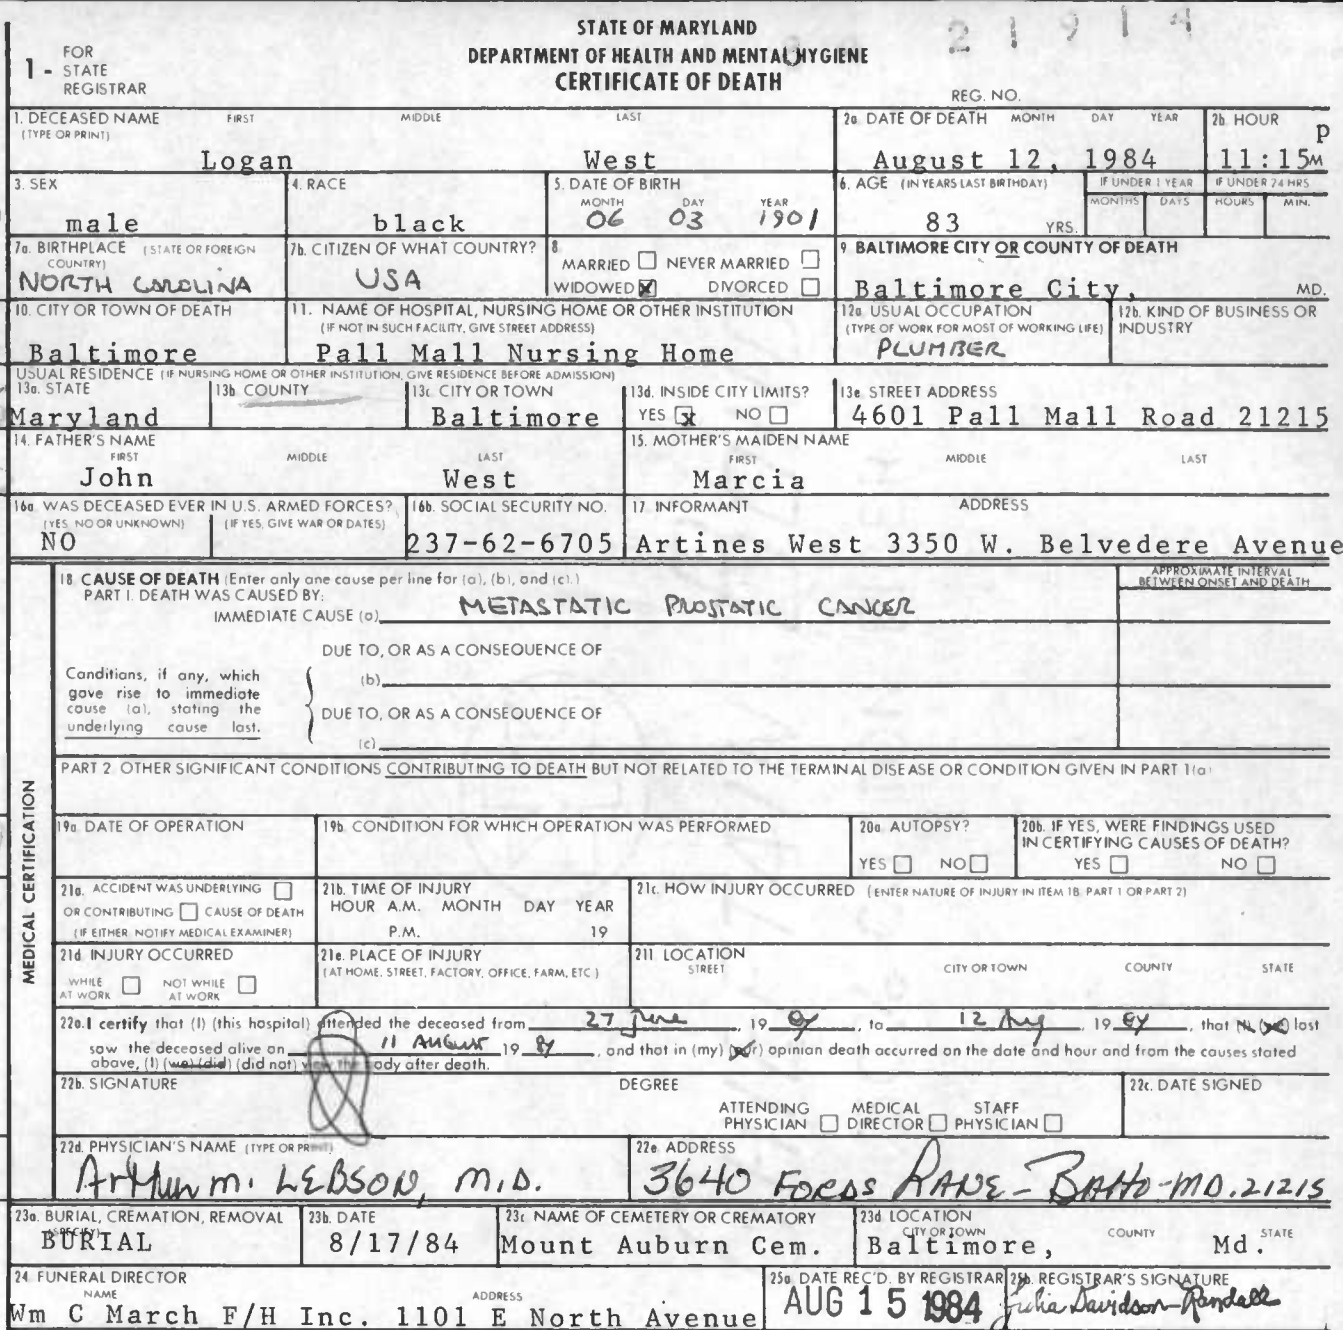 STATE OF MARYLAND
21914
DEPARTMENT OF HEALTH AND MENTAL HYGIENE
CERTIFICATE OF DEATH
1 - FOR STATE REGISTRAR
REG. NO.
1. DECEASED NAME FIRST MIDDLE LAST
(TYPE OR PRINT)
Logan West
2a DATE OF DEATH MONTH DAY YEAR
August 12, 1984
2b. HOUR
P
11:15M
3. SEX
male
4. RACE
black
5. DATE OF BIRTH
MONTH DAY YEAR
06 03 1901
6. AGE (IN YEARS LAST BIRTHDAY)
83 YRS.
IF UNDER 1 YEAR
MONTHS DAYS
IF UNDER 24 HRS
HOURS MIN.
7a. BIRTHPLACE (STATE OR FOREIGN
COUNTRY)
NORTH CAROLINA
7b. CITIZEN OF WHAT COUNTRY?
USA
8
MARRIED NEVER MARRIED
WIDOWED X DIVORCED
9 BALTIMORE CITY OR COUNTY OF DEATH
Baltimore City, MD.
10. CITY OR TOWN OF DEATH
Baltimore
11. NAME OF HOSPITAL, NURSING HOME OR OTHER INSTITUTION
(IF NOT IN SUCH FACILITY, GIVE STREET ADDRESS)
Pall Mall Nursing Home
12a USUAL OCCUPATION
(TYPE OF WORK FOR MOST OF WORKING LIFE)
PLUMBER
12b. KIND OF BUSINESS OR
INDUSTRY
USUAL RESIDENCE (IF NURSING HOME OR OTHER INSTITUTION, GIVE RESIDENCE BEFORE ADMISSION)
13a. STATE
Maryland
13b COUNTY
13c CITY OR TOWN
Baltimore
13d. INSIDE CITY LIMITS?
YES X NO
13e STREET ADDRESS
4601 Pall Mall Road 21215
14. FATHER'S NAME
FIRST MIDDLE LAST
John West
15. MOTHER'S MAIDEN NAME
FIRST MIDDLE LAST
Marcia
16a WAS DECEASED EVER IN U.S. ARMED FORCES?
(YES, NO OR UNKNOWN) (IF YES, GIVE WAR OR DATES)
NO
16b. SOCIAL SECURITY NO.
237-62-6705
17. INFORMANT ADDRESS
Artines West 3350 W. Belvedere Avenue
MEDICAL CERTIFICATION
18 CAUSE OF DEATH (Enter only one cause per line for (a), (b), and (c).)
APPROXIMATE INTERVAL
BETWEEN ONSET AND DEATH
PART I. DEATH WAS CAUSED BY:
IMMEDIATE CAUSE (a) METASTATIC PROSTATIC CANCER
DUE TO, OR AS A CONSEQUENCE OF
Conditions, if any, which
gave rise to immediate
cause (a), stating the
underlying cause last.
(b)
DUE TO, OR AS A CONSEQUENCE OF
(c)
PART 2. OTHER SIGNIFICANT CONDITIONS CONTRIBUTING TO DEATH BUT NOT RELATED TO THE TERMINAL DISEASE OR CONDITION GIVEN IN PART 1(a)
19a DATE OF OPERATION
19b. CONDITION FOR WHICH OPERATION WAS PERFORMED
20a AUTOPSY?
YES NO
20b. IF YES, WERE FINDINGS USED
IN CERTIFYING CAUSES OF DEATH?
YES NO
21a. ACCIDENT WAS UNDERLYING
OR CONTRIBUTING CAUSE OF DEATH
(IF EITHER NOTIFY MEDICAL EXAMINER)
21b. TIME OF INJURY
HOUR A.M. MONTH DAY YEAR
P.M. 19
21c. HOW INJURY OCCURRED (ENTER NATURE OF INJURY IN ITEM 18, PART 1 OR PART 2)
21d INJURY OCCURRED
WHILE AT WORK NOT WHILE AT WORK
21e. PLACE OF INJURY
(AT HOME, STREET, FACTORY, OFFICE, FARM, ETC)
21f LOCATION
STREET CITY OR TOWN COUNTY STATE
22a. I certify that (I) (this hospital) attended the deceased from 27 June, 19 84, to 12 Aug 19 84, that (we) last
saw the deceased alive on 11 AUGUST 19 84, and that in (my) (our) opinion death occurred on the date and hour and from the causes stated
above, (I) (we) (did) (did not) view the body after death.
22b. SIGNATURE DEGREE
ATTENDING PHYSICIAN MEDICAL DIRECTOR STAFF PHYSICIAN
22c. DATE SIGNED
22d. PHYSICIAN'S NAME (TYPE OR PRINT)
Arthur M. LEBSON, M.D.
22e. ADDRESS
3640 FORDS LANE - BALTO - MD. 21215
23a. BURIAL, CREMATION, REMOVAL
(SPECIFY)
BURIAL
23b. DATE
8/17/84
23c NAME OF CEMETERY OR CREMATORY
Mount Auburn Cem.
23d. LOCATION
CITY OR TOWN COUNTY STATE
Baltimore, Md.
24 FUNERAL DIRECTOR
NAME ADDRESS
Wm C March F/H Inc. 1101 E North Avenue
25a DATE REC'D. BY REGISTRAR
AUG 15 1984
25b. REGISTRAR'S SIGNATURE
Julia Davidson-Randall